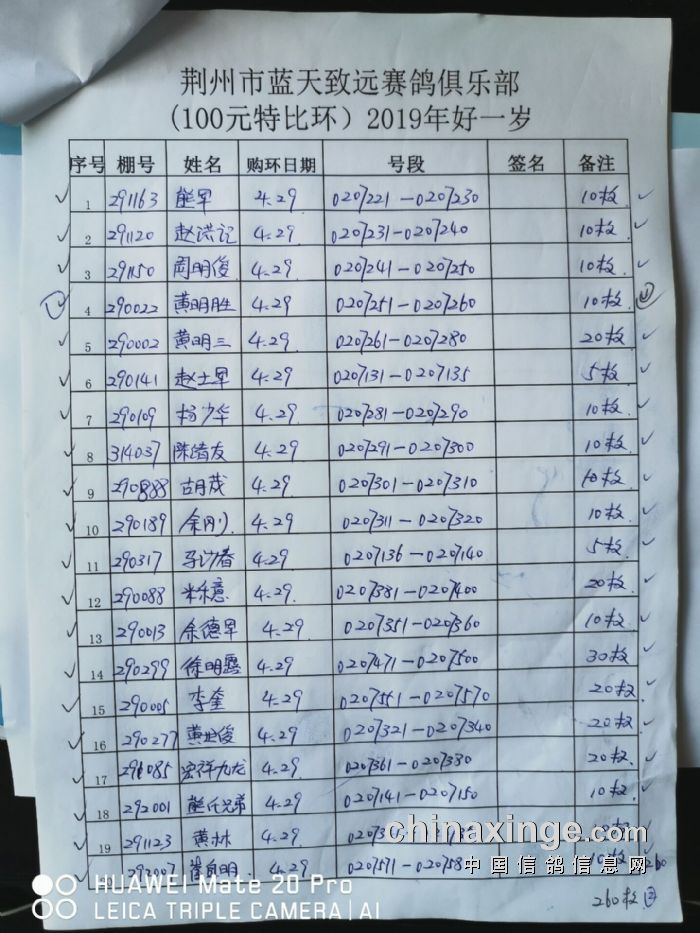 荆州市蓝天致远赛鸽俱乐部
(100元特比环）2019年好一岁
序号 棚号 姓名 购环日期 号段 签名 备注
1 291163 熊早 4.29 0207221-0207230 10枚
2 291120 赵洪记 4.29 0207231-0207240 10枚
3 291150 周明俊 4.29 0207241-0207250 10枚
4 290022 黄明胜 4.29 0207251-0207260 10枚
5 290002 黄明三 4.29 0207261-0207280 20枚
6 290141 赵士早 4.29 0207131-0207135 5枚
7 290109 杨少华 4.29 0207281-0207290 10枚
8 314037 4.29 0207291-0207300 10枚
9 290888 胡茂 4.29 0207301-0207310 10枚
10 290189 余刚 4.29 0207311-0207320 10枚
11 290317 4.29 0207136-0207140 5枚
12 290088 4.29 0207381-0207400 20枚
13 290013 余德早 4.29 0207351-0207360 10枚
14 290299 徐明 4.29 0207471-0207500 30枚
15 290005 李奎 4.29 0207551-0207570 20枚
16 290277 4.29 0207321-0207340 20枚
17 4.29 20枚
18 292001 熊氏兄弟 4.29 0207141-0207150 10枚
19 291123 黄林 4.29
4.29 0207571-
260枚
chinaxinge.com
中国信鸽信息网
HUAWEI Mate 20 Pro
LEICA TRIPLE CAMERA | AI